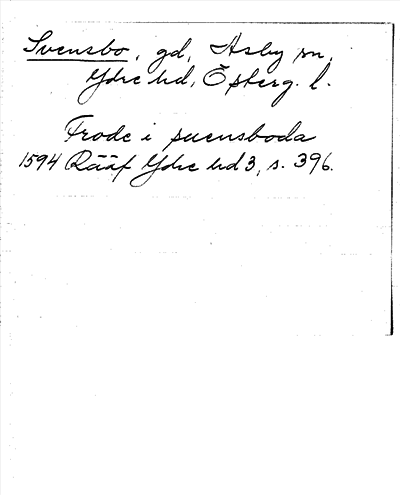 Svensbo, gd, Asby sn,
Ydre hd, Österg. l.
Frode i suensboda
1594 Rääf Ydre hd 3, s. 396.